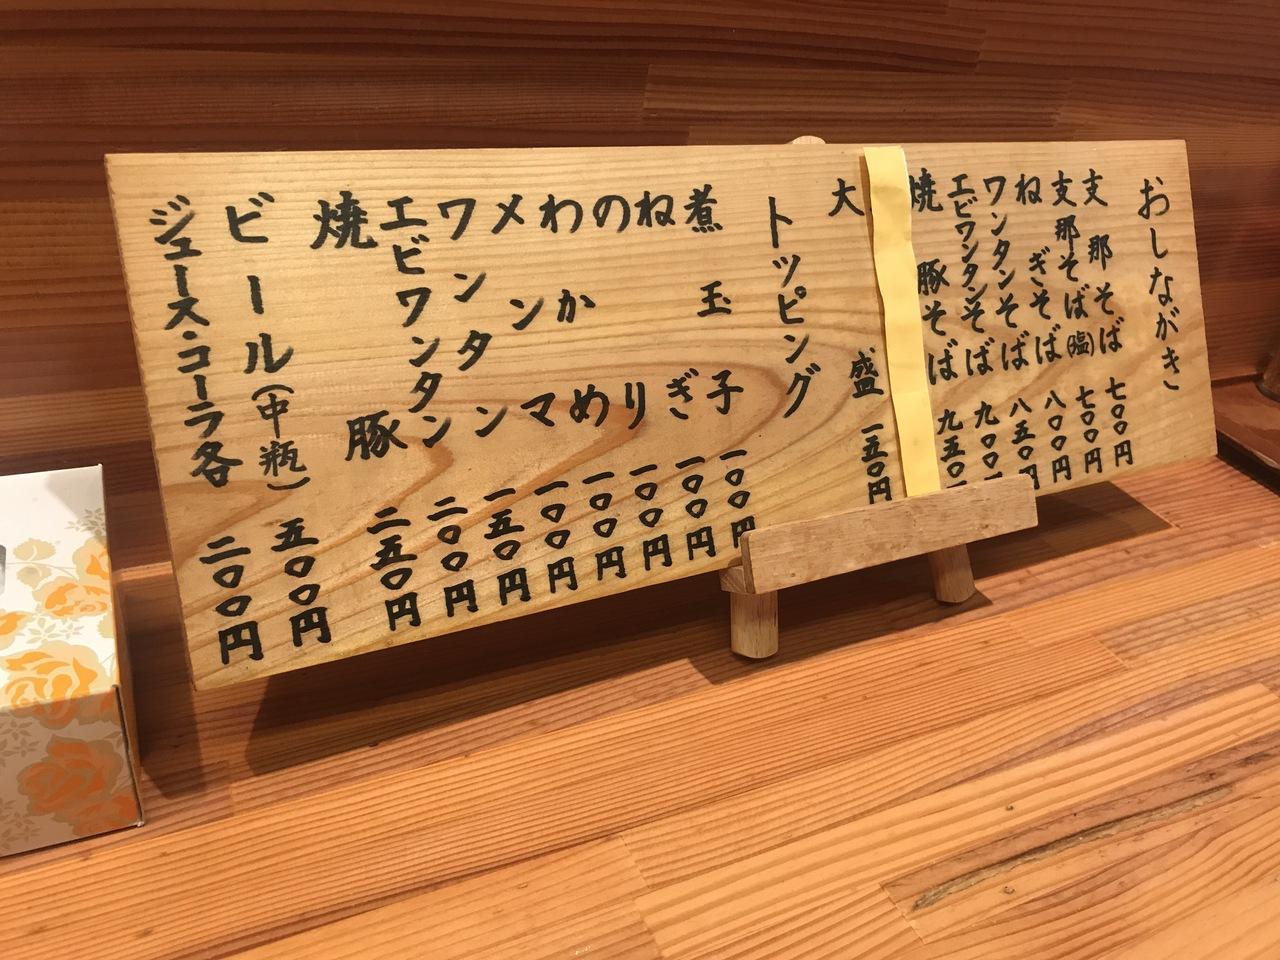 おしながき
支那そば 七〇〇円
支那そば(塩) 七〇〇円
ねぎそば 八〇〇円
ワンタンそば 八五〇円
エビワンタンそば 九〇〇
焼豚そば 九五〇
大盛 一五〇円
トッピング
煮玉子 一〇〇円
ねぎ 一〇〇円
のり 一〇〇円
わかめ 一〇〇円
メンマ 一〇〇円
ワンタン 一五〇円
エビワンタン 二〇〇円
焼豚 二五〇円
ビール(中瓶) 五〇〇円
ジュース・コーラ各 二〇〇円